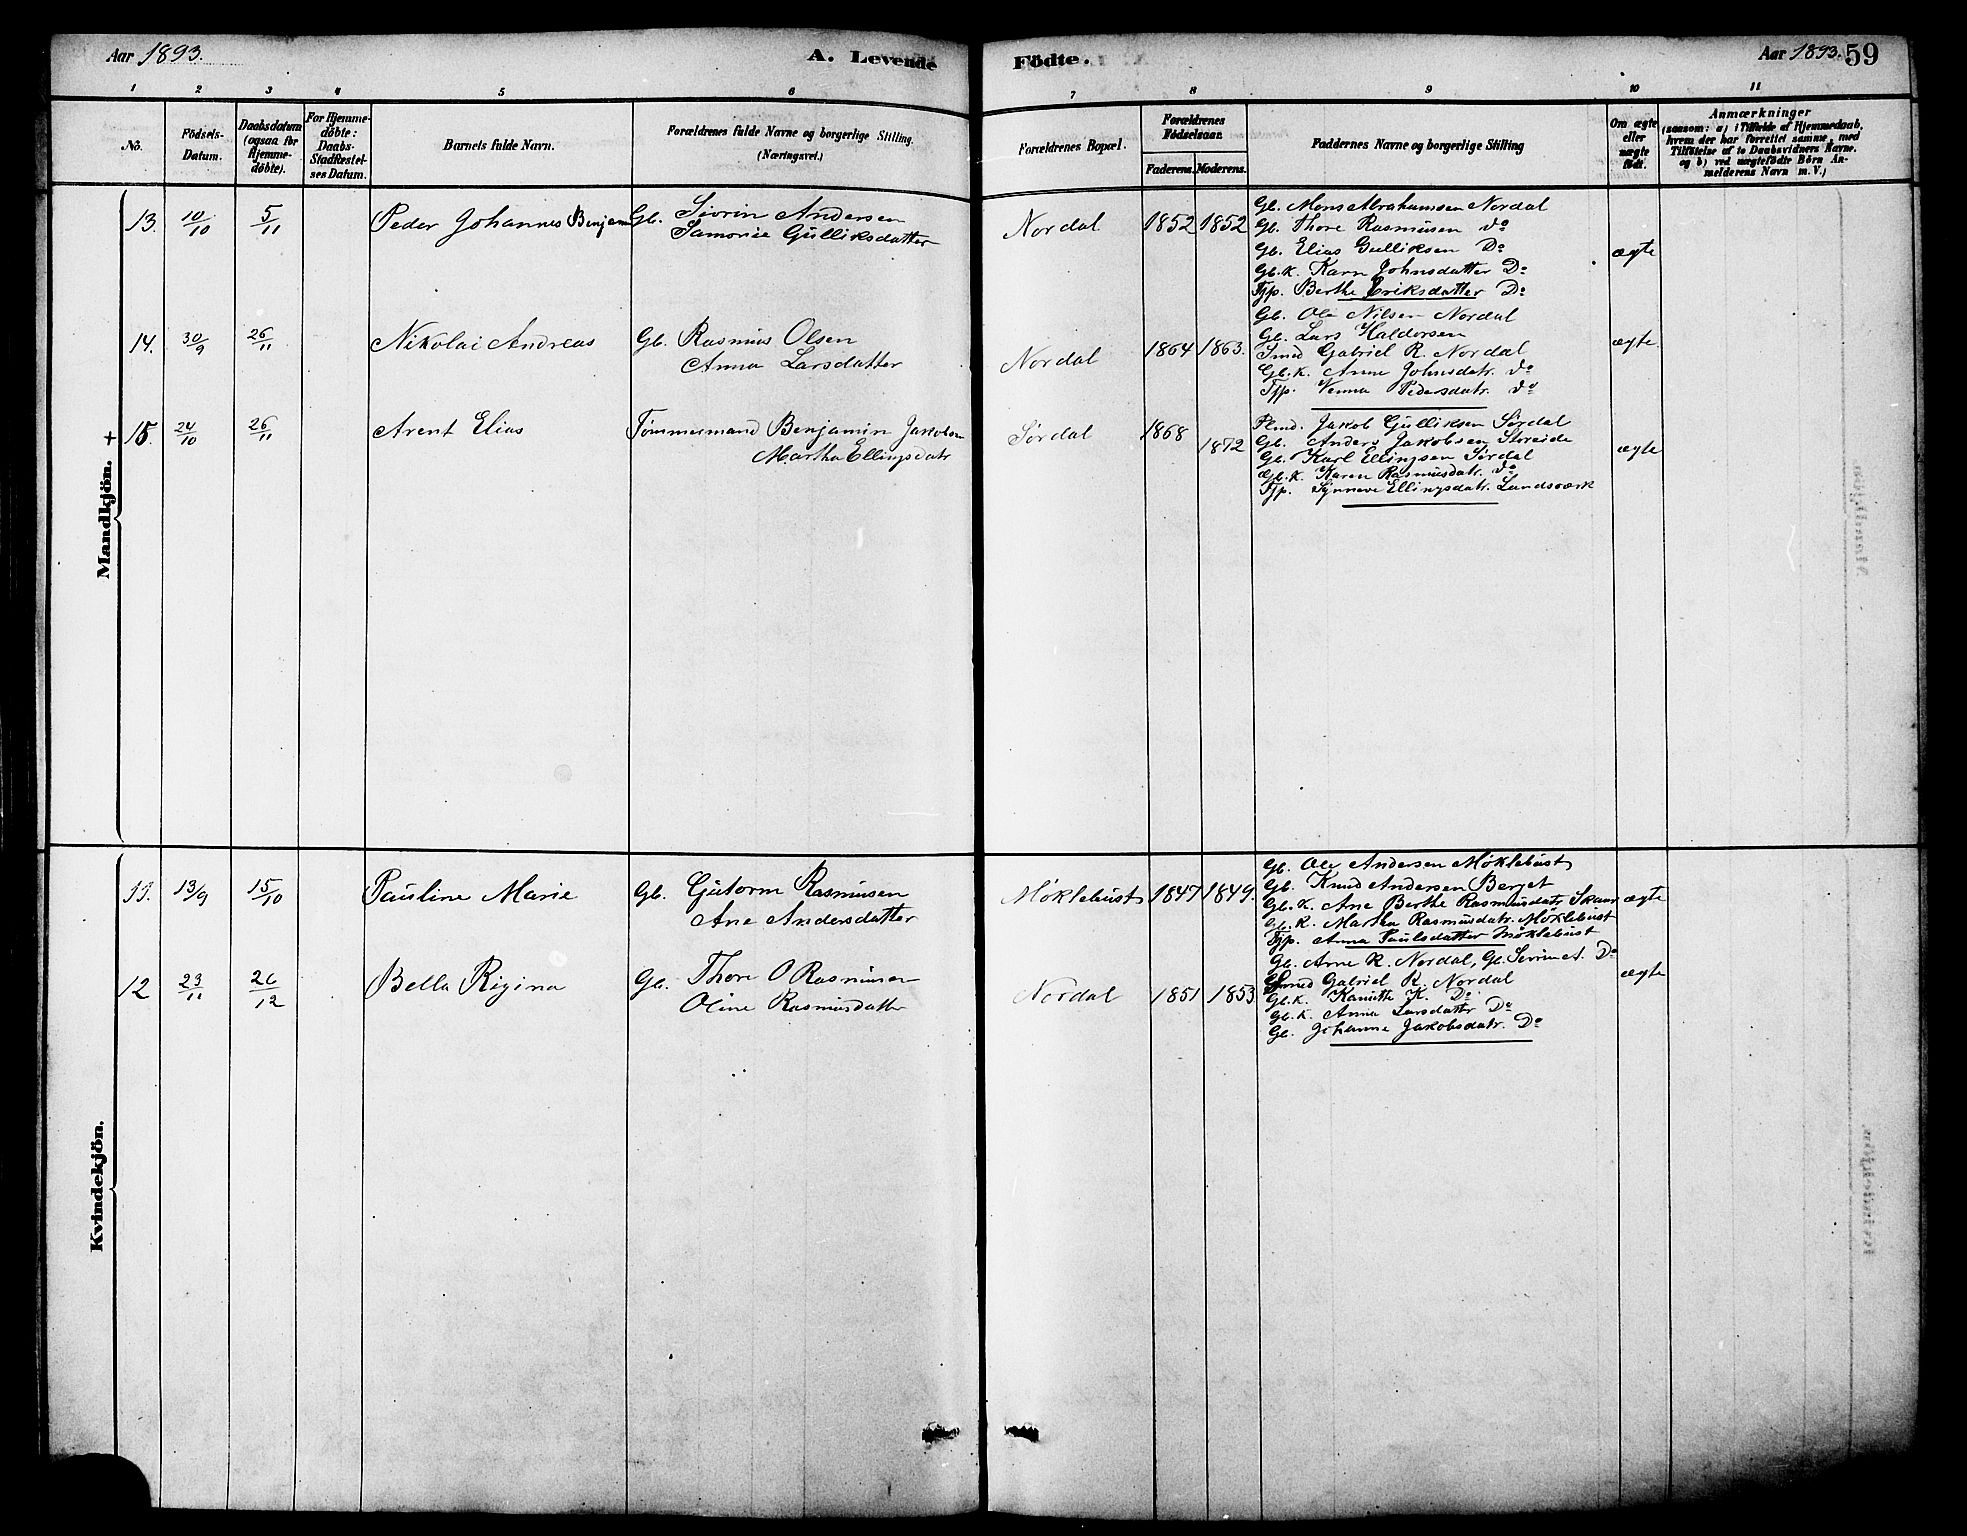 Aar 1893. A. Levende Födte. Aar 1893. 59
1 2 3 4 5 6 7 8 9 10 11
No.
Födsels-Datum.
Daabsdatum (ogsaa for Hjemme-döbte).
For Hjemme-döbte: Daabs-Stadfæstel-ses Datum.
Barnets fulde Navn.
Forældrenes fulde Navne og borgerlige Stilling.
(Næringsvei.)
Forældrenes Bopæl.
Forældrenes Födselsaar.
Faderens. Moderens.
Faddernes Navne og borgerlige Stilling
Om ægte eller uægte födt.
Anmærkninger
(saasom: a) i Tilfælde af Hjemmedaab,
hvem der har forrettet samme, med
Tilföielse af to Daabsvidners Navne.
og b) ved uægtefödte Börn An-
melderens Navn m. V.)
Mandkjön.
13. 10/10 5/11 Peder Johannes Benjam Gb. Sivrin Andersen
Samorie Gulliksdatter
Nordal 1852 1852
Gb. Mons Abrahamsen Nordal
Gb. Thore Rasmusen do
Gb. Elias Gulliksen Do
Gb.K. Karn Johnsdatter Do
Tjp. Berthe Eriksdatter Do
ægte
14. 30/9 26/11 Nikolai Andreas Gb. Rasmus Olsen
Anna Larsdatter
Nordal 1864 1863.
Gb. Ole Nilsen Nordal
Gb. Lars Haldorsen
Smed Gabriel R. Nordal
Gb.K. Anne Johnsdatr. do
Tjp. Venna Pedersdatr. do
ægte.
+ 15. 24/10 26/11 Arent Elias Tømmermand Benjamin Jakobsen
Martha Ellingsdatr
Sørdal 1868 1872
Jakob Gulliksen Sørdal
Gb. Anders Jakobsen Storeide
Gb. Karl Ellingsen Sørdal
Gb.K. Karen Rasmusdatr. do
Tjp. Synneve Ellingsdatr. Landsværk
ægte
Kvindekjön.
11. 13/9 15/10 Pauline Marie Gb. Gutorm Rasmusen
Ane Andersdatter
Møklebust 1847 1849.
Gb. Ole Andersen Møklebust
Gb. Knud Andersen Berget
Gb.K. Ane Berthe Rasmusdatr Skaar
Gb.K. Martha Rasmusdatr. Møklebust
Tjp. Anna Paulsdatter Møklebust
ægte
12 23/11 26/12 Bella Rigina Gb. Thore O Rasmusen
Oline Rasmusdatter
Nordal 1851 1853
Gb. Arne R. Nordal, Gb. Sivrin A. Do
Smed Gabriel R. Nordal
Gb.K. Kanutte K. Do
Gb.K. Anna Larsdattr Do
Gb. Johanne Jakobsdatr. Do
ægte